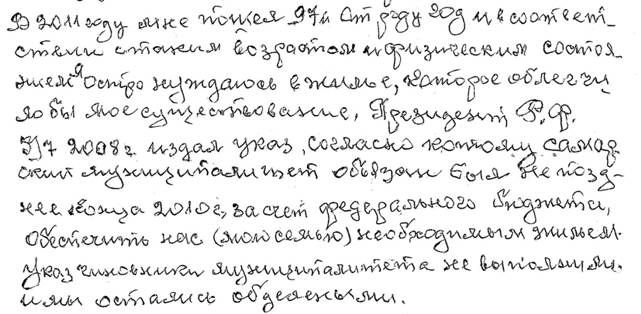 В 2011 году мне пошел 97й год и в соответ-
ствии с таким возрастом и физическим состоя-
нием я остро нуждаюсь в жилье, которое облегчи
ло бы мое существование, Президент Р.Ф.
2008г. издал указ, согласно которому самар
ский муниципалитет обязан был не позд-
нее конца 2010г, за счет федерального бюджета,
обеспечить нас (мою семью) необходимым жильем.
Указ чиновники муниципалитета не выполнили.
и мы остались обделеными.